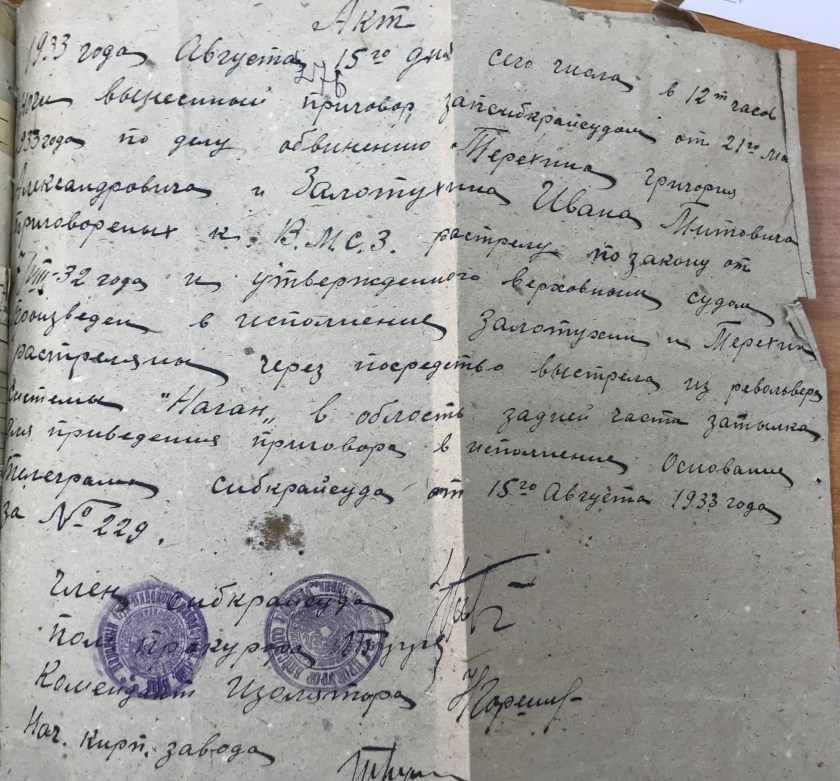 Акт
1933 года Августа 15го дня сего числа в 12т часов
276
ночи вынесиный приговор запсибкрайсудом от 21го
933 года по делу обвинению Терехина Григория
Александровича и Залотухина Ивана Титовича
приговореных к В.М.С.З. растрелу по закону от
7/VIII-32 года и утвержденного верховным судом
произведен в исполнение Залотухин и Терехин
растреляны через посредство выстрела из револьвера
системы "Наган" в область задней части затылка
для приведения приговора в исполнение Основание
телеграма сибкрайсуда от 15го Августа 1933 года
за № 229.
Член сибкрайсуда
Пом прокурора
Комендант Изолятора
Нач. кирп. завода